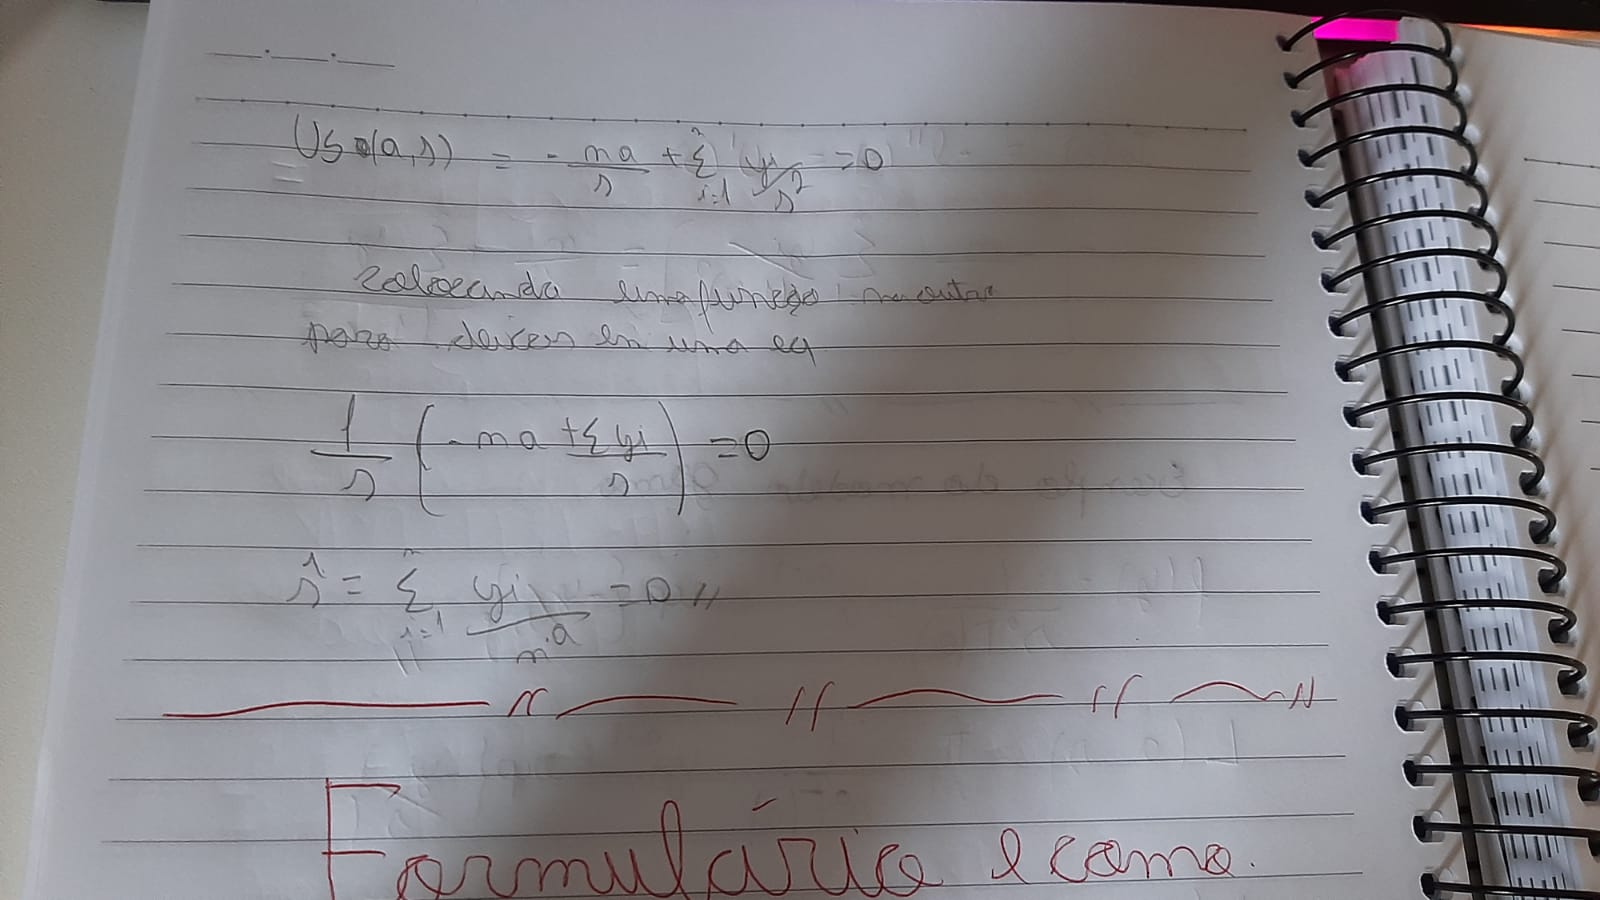 Us(a,s) = - na/s + Σ i=1 n yi/s² = 0
colocando uma função na outra
para deixar em uma eq
1/s ( -na + Σyi/s ) = 0
ŝ = Σ i=1 n yi/na = 0 //
Formulário e como.